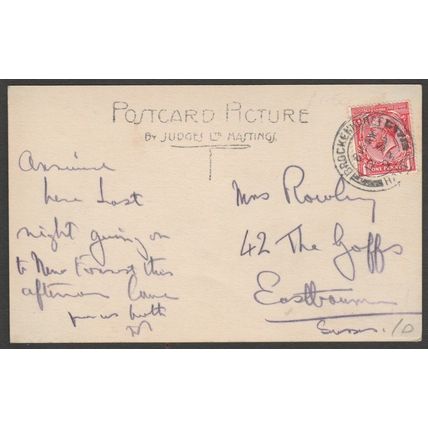 POSTCARD PICTURE
BY JUDGES LTD HASTINGS.
BROCKENHURST
ONE PENNY
here Last
night going on
to New Forrest this
afternoon Love
from us both
Mrs Rowley
42 The Goffs
Eastbourne
Sussex.